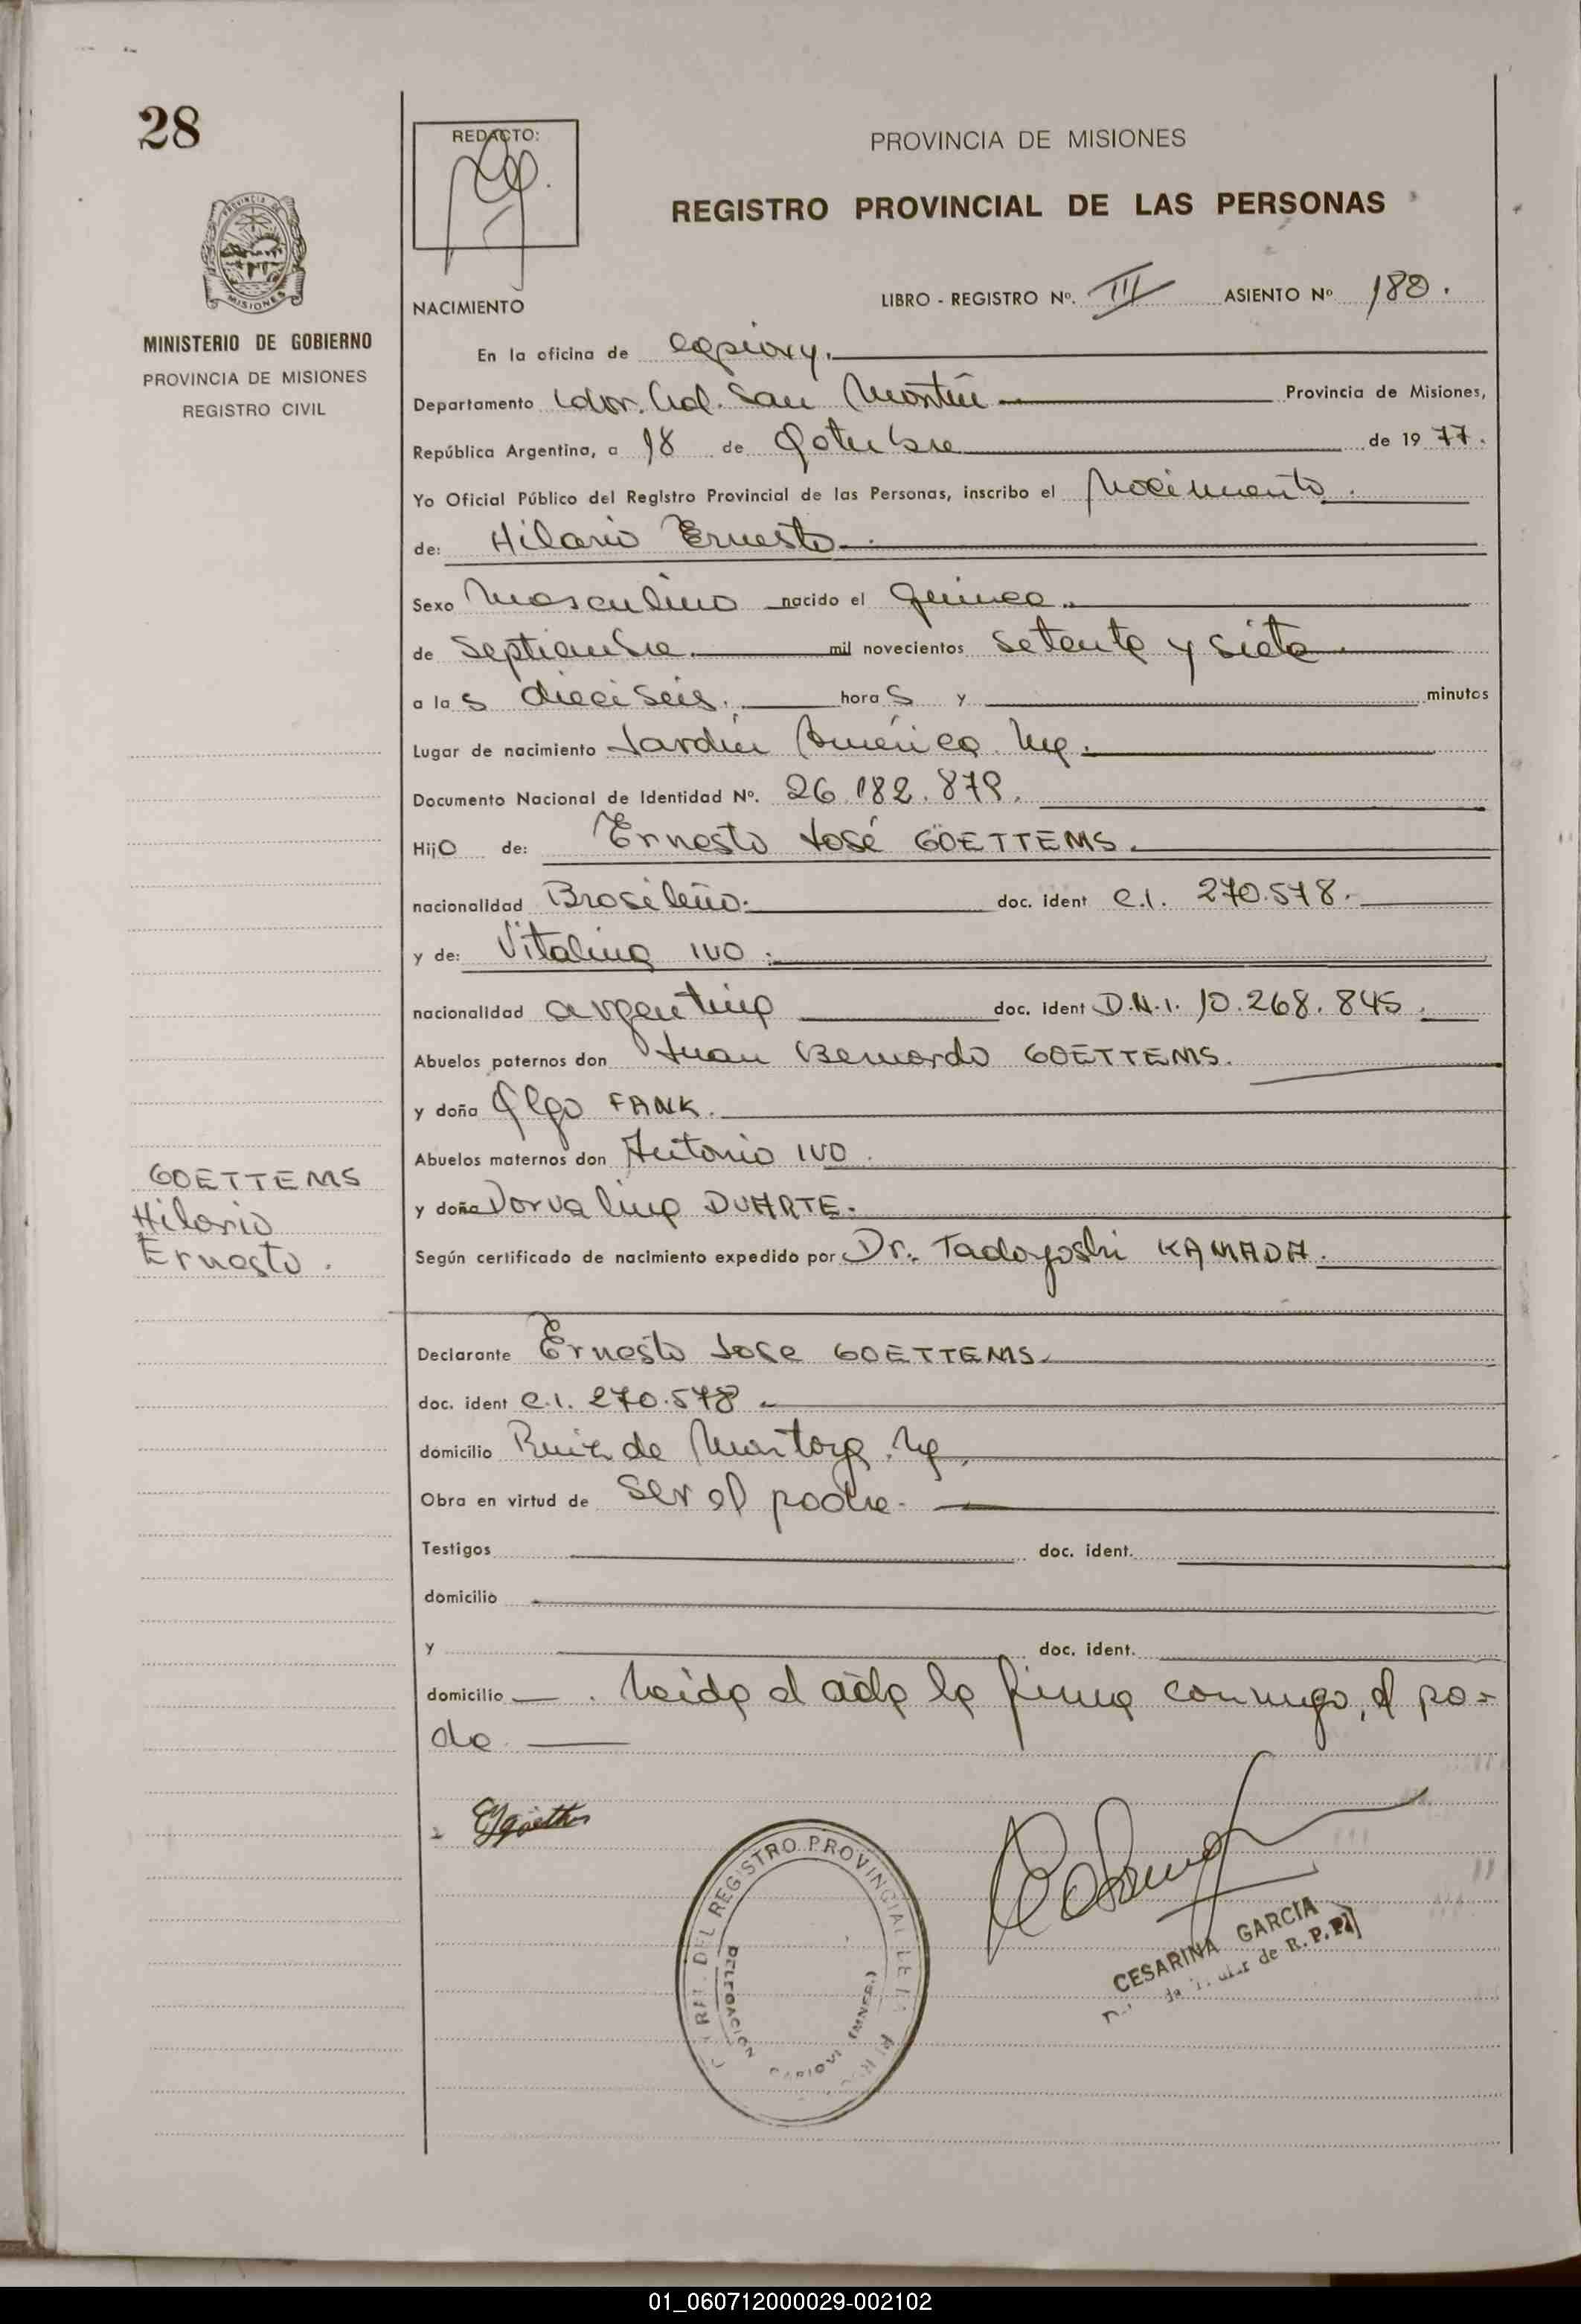 28
REDACTO:
PROVINCIA DE MISIONES
REGISTRO PROVINCIAL DE LAS PERSONAS
MISIONES
MINISTERIO DE GOBIERNO
PROVINCIA DE MISIONES
REGISTRO CIVIL
LIBRO - REGISTRO Nº. III ASIENTO Nº 180.
NACIMIENTO
En la oficina de Capiovy.
Departamento Ldor. Gral. San Martín Provincia de Misiones,
República Argentina, a 18 de Octubre de 1977.
Yo Oficial Público del Registro Provincial de las Personas, inscribo el Nacimiento.
de: Hilario Ernesto.
Sexo Masculino nacido el quince.
de Septiembre. mil novecientos setenta y siete.
a las dieciseis. horas y minutos
Lugar de nacimiento Jardín América.
Documento Nacional de Identidad Nº. 26.182.879.
Hijo de: Ernesto José GOETTEMS.
nacionalidad Brasileño. doc. ident C.I. 270.578.
y de: Vitalina IVO.
nacionalidad argentina doc. ident D.N.I. 10.268.845.
Abuelos paternos don Juan Bernardo GOETTEMS.
y doña Olga FANK.
Abuelos maternos don Antonio IVO.
y doña Dorvalina DUARTE.
GOETTEMS
Hilario
Ernesto.
Según certificado de nacimiento expedido por Dr. Tadayoshi KAMADA.
Declarante Ernesto Jose GOETTEMS.
doc. ident C.I. 270.578
domicilio Ruiz de Montoya.
Obra en virtud de ser el padre.
Testigos doc. ident.
domicilio
y doc. ident.
domicilio — . Leida el acta la firma conmigo, el pa-
dre.
REGISTRO PROVINCIAL
DELEGACION
CESARINA GARCIA
de R.P.P.
01_060712000029-002102